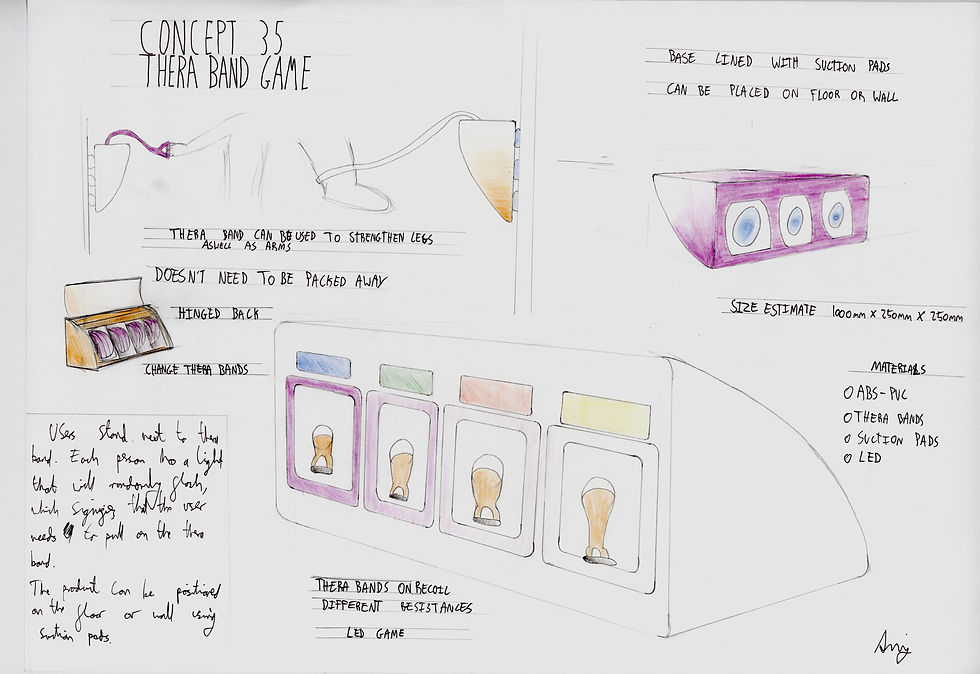 CONCEPT 35
THERA BAND GAME
BASE LINED WITH SUCTION PADS
CAN BE PLACED ON FLOOR OR WALL
THERA BAND CAN BE USED TO STRENGTHEN LEGS
ASWELL AS ARMS
DOESN'T NEED TO BE PACKED AWAY
HINGED BACK
CHANGE THERA BANDS
SIZE ESTIMATE 1000mm x 250mm x 250mm
MATERIALS
ABS-PVC
THERA BANDS
SUCTION PADS
LED
Users stand next to thera
band. Each person has a light
that will randomly flash,
which signifies that the user
needs to pull on the thera
band.
The product can be positioned
on the floor or wall using
suction pads.
THERA BANDS ON RECOIL
DIFFERENT RESISTANCES
LED GAME